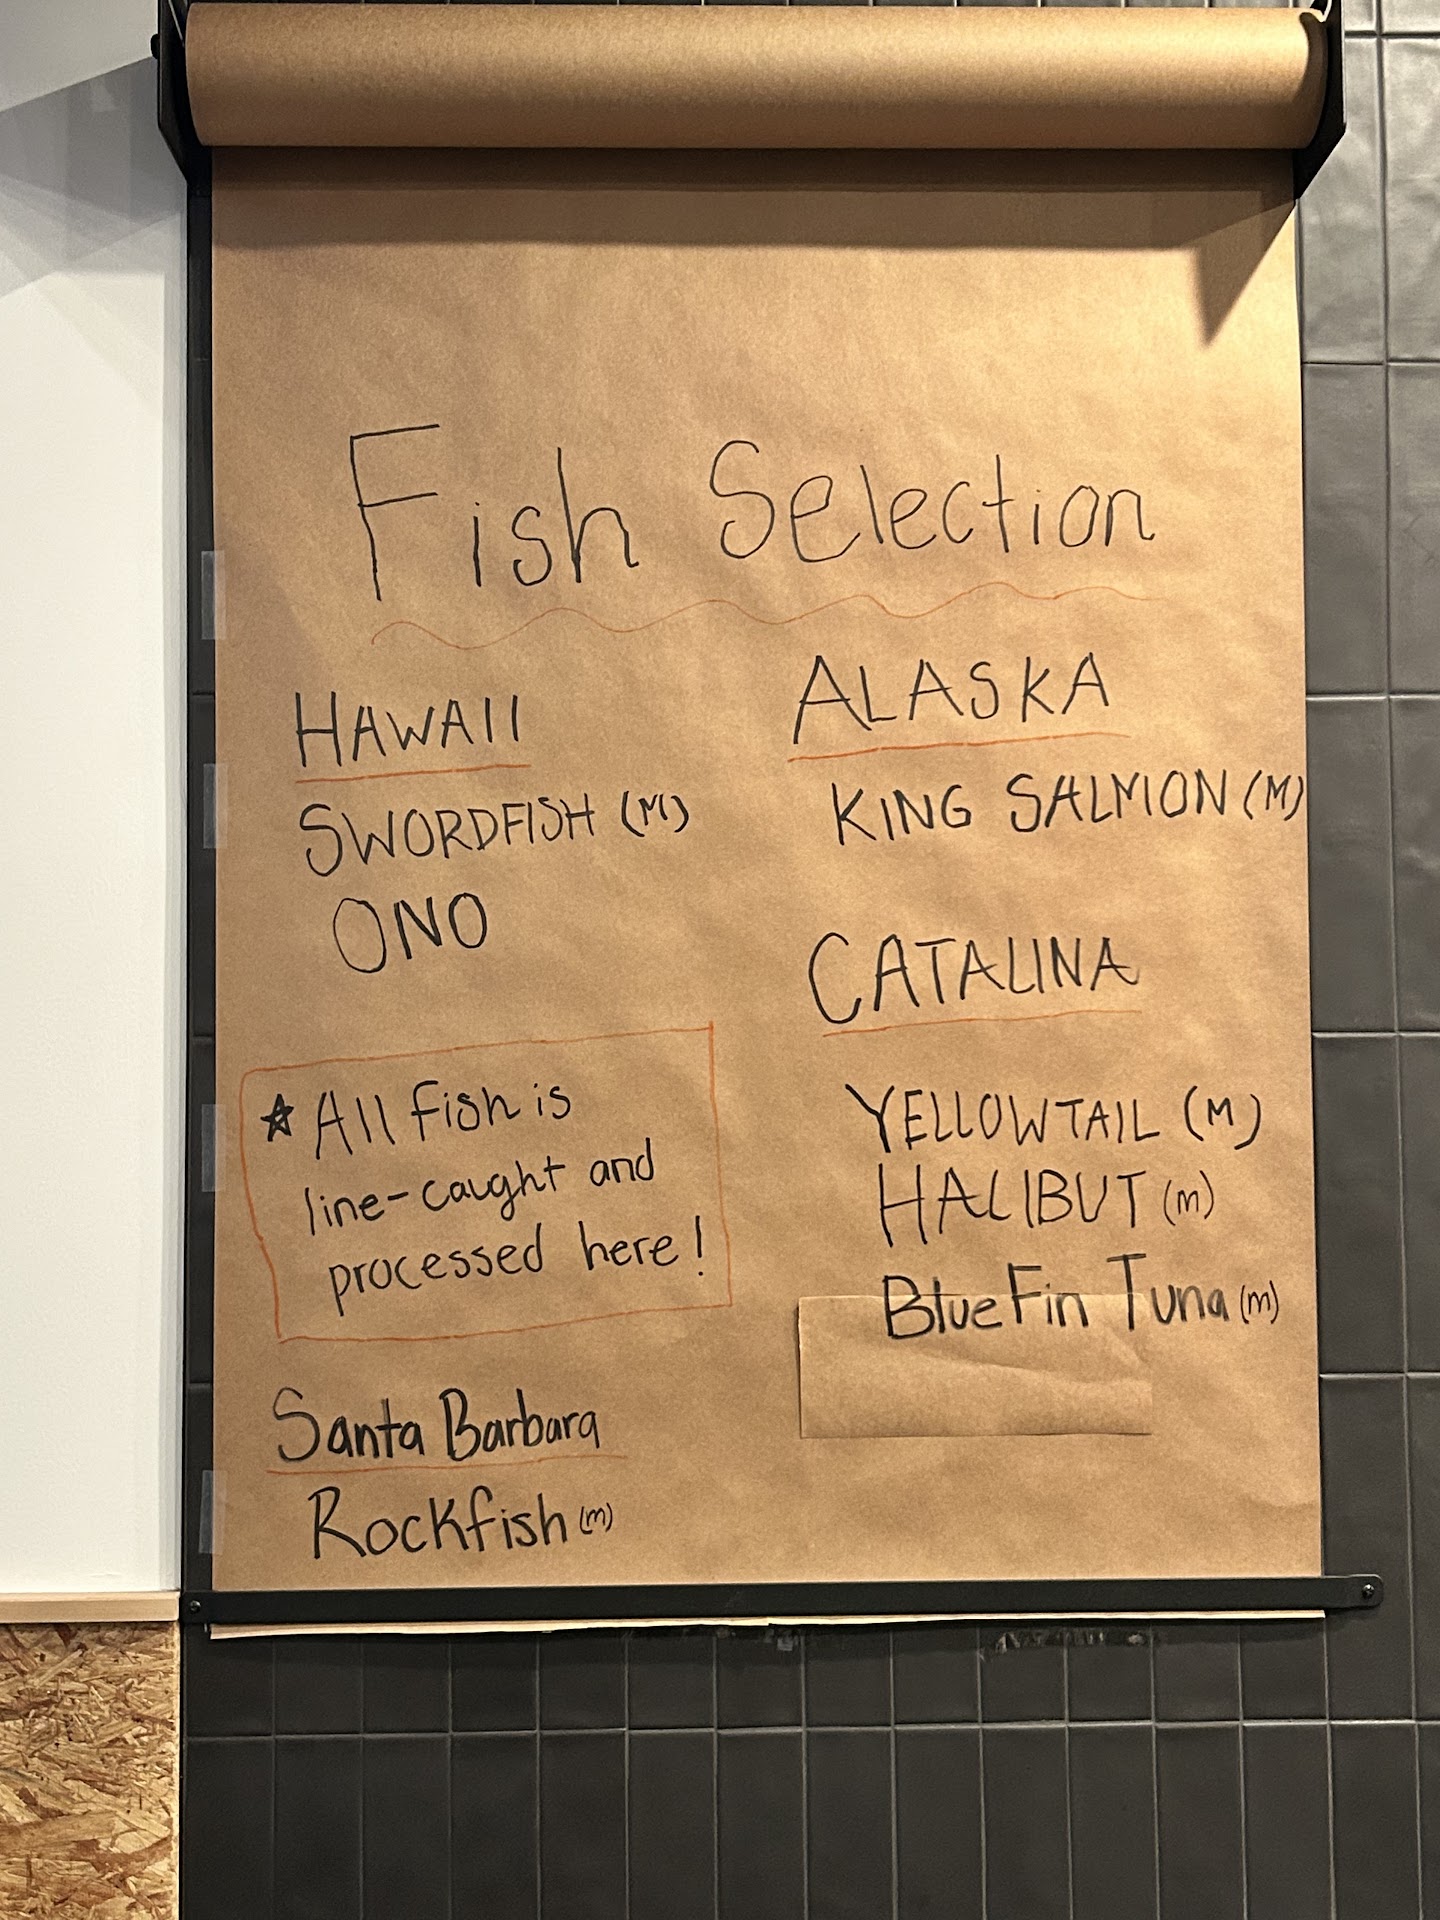 Fish Selection
HAWAII
SWORDFISH (M)
ONO
★ All fish is
line-caught and
processed here!
Santa Barbara
Rockfish (m)
ALASKA
KING SALMON (M)
CATALINA
YELLOWTAIL (M)
HALIBUT (m)
BlueFin Tuna (m)